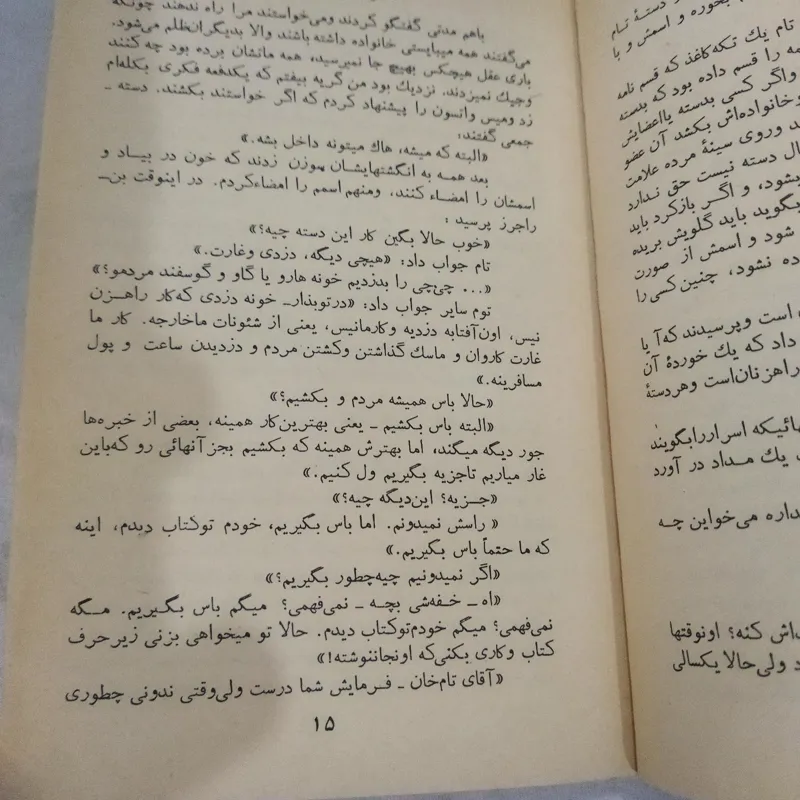 باهم مدتی گفتگو کردند ومی‌خواستند مرا راه ندهند چونکه
می‌گفتند همه میبایستی خانواده داشته باشند والا بدیگران‌ظلم می‌شود.
باری عقل هیچکس بهیچ جا نمیرسید، همه ماتشان برده بود چه کنند
وجیك نمیزدند. نزدیك بود من گریه بیفتم که یکدفعه فکری بکله‌ام
زد ومیس واتسون را پیشنهاد کردم که اگر خواستند بکشند. دسته ـ
جمعی گفتند:
«البته که میشه، هاك میتونه داخل بشه.»
بعد همه به انگشتهایشان سوزن زدند که خون در بیاد و
اسمشان را امضاء کنند، ومنهم اسمم را امضاءکردم. در اینوقت بن‌ـ
راجرز پرسید :
«خوب حالا بگین کار این دسته چیه؟»
تام جواب داد: «هیچی دیگه، دزدی وغارت.»
«... چی‌چی را بدزدیم خونه هارو یا گاو و گوسفند مردمو؟»
توم سایر جواب داد: «درتوبذار‌ـ خونه دزدی که‌کار راهزن
نیس، اون‌آفتابه دزدیه وکارمانیس، یعنی از شئونات ماخارجه. کار ما
غارت کاروان و ماسك گذاشتن وکشتن مردم و دزدیدن ساعت و پول
مسافرینه.»
«حالا باس همیشه مردم و بکشیم؟»
«البته باس بکشیم ـ یعنی بهترین‌کار همینه، بعضی از خبره‌ها
جور دیگه میگند، اما بهترش همینه که بکشیم بجز آنهائی رو که‌باین
غار میاریم تاجزیه بگیریم ول کنیم.»
«جـزیه؟ این‌دیگه چیه؟»
« راسش نمیدونم. اما باس بگیریم، خودم توکتاب دیدم، اینه
که ما حتماً باس بگیریم.»
«اگر نمیدونیم چیه‌چطور بگیریم؟»
«اه ـ خفه‌شی بچه ـ نمی‌فهمی؟ میگم باس بگیریم. مگه
نمی‌فهمی؟ میگم خودم‌توکتاب دیدم. حالا تو میخواهی بزنی زیرحرف
کتاب وکاری بکنی‌که اونجاننوشته!»
«آقای تام‌خان ـ فرمایش شما درست ولی‌وقتی ندونی چطوری
۱۵
دستهٔ تام
بخوره و اسمش و با
تام یك تکه‌کاغذ که قسم نامه
را قسم داده بود که بدسته
واگر کسی بدسته یااعضایش
خانواده‌اش بکشد آن عضو
وروی سینهٔ مرده علامت
دسته نیست حق ندارد
بشود، و اگر بازکرد باید
بگوید باید گلویش بریده
شود و اسمش از صورت
نشود، چنین‌کسی را
است وپرسیدند که‌آ یا
داد که یك خوردهٔ آن
راهزنان‌است وهردستهٔ
اسراررابگویند
یك مداد در آورد
می‌خواین چه
کنه؟ اونوقتها
ولی‌حالا یکسالی